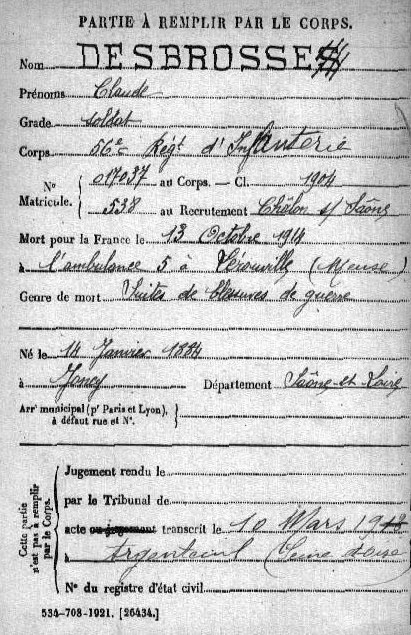 PARTIE À REMPLIR PAR LE CORPS.
Nom DESBROSSE
Prénoms Claude
Grade Soldat
Corps 56e Régt d'Infanterie
N° Matricule. 017037 au Corps. — Cl. 1904
538 au Recrutement Châlon s/ Saône
Mort pour la France le 13 Octobre 1914
à l'ambulance 5 à Vérouville (Meuse)
Genre de mort Suites de blessures de guerre
Né le 14 Janvier 1884
à Joncy Département Saône-et-Loire
Arrt municipal (pr Paris et Lyon),
à défaut rue et N°.
Cette partie n'est pas à remplir par le Corps.
Jugement rendu le
par le Tribunal de
acte ou jugement transcrit le 10 Mars
à Argenteuil (Seine et Oise)
N° du registre d'état civil
534-708-1921. [26434.]